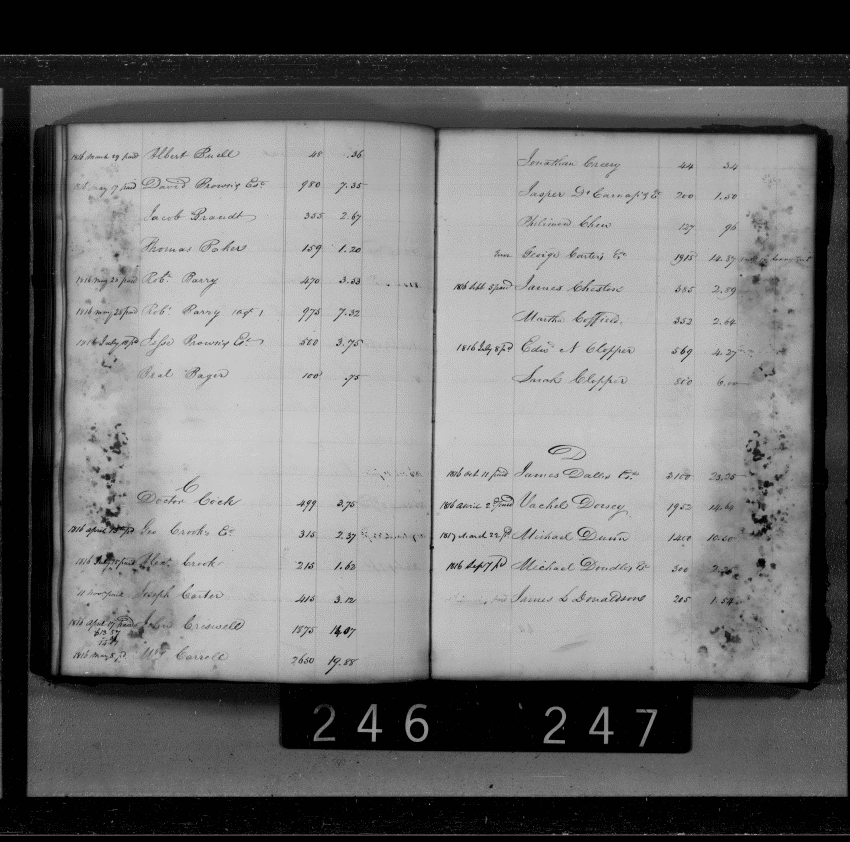 1816 march 29 paid Albert Buell 48 .36
may 7 paid David Brown's Est 980 7.35
Jacob Brandt 355 2.67
Thomas Baker 159 1.20
1816 may 28 paid Robt Barry 470 3.53
1816 may 28 paid Robt Barry 975 7.32
1816 July Brown's Est 500 3.75
100 .75
C
Doctor Cock 499 3.75
1816 april Geo Crook's Est 315 2.37
1816 July paid Crook 215 1.62
paid Joseph Carter 415 3.12
1816 April 17 paid Creswell 1875 14.07
$13 57
1816 may 8 pd Carroll 2650 19.88
Jonathan Creery 44 34
Jasper De Carnap's Est 200 1.50
Philemon Chew 127 96
George Carter's Est 1915 14.37
1816 Sept 5 paid James Cheston 385 2.89
Martha 352 2.64
1816 July 8 pd Edwd N Clopper 569 4.27
Sarah Clopper 800 6.00
D
1816 Oct 11 paid James Dall's Est 3100 23.25
1816 2d paid Vachel Dorsey 1952 14.64
1817 March 22 pd Michael Dunn 1400 10.50
1816 Sep 7 pd Michael Est 300
James L Donaldson 205 1.54
246 247